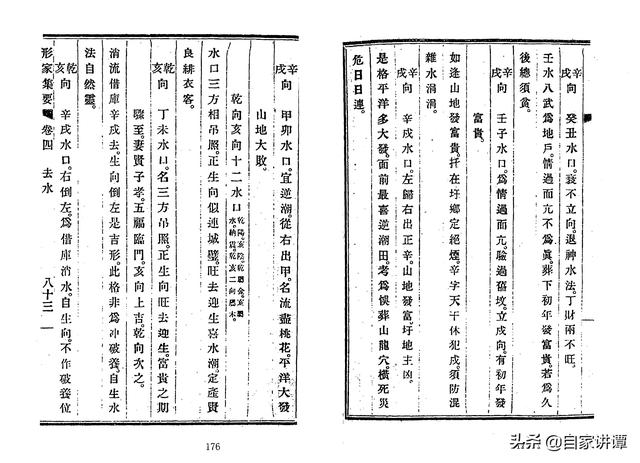 辛戌向 癸丑水口。衰不立向。退神水法。丁財兩不旺。
壬水八武為地戶。情過而亢不為眞。葬下初年發富貴。若為久
後總須貧。
辛戌向 壬子水口。為情過而亢。驗過舊墳。立戌向。有初年發
富貴。
如逢山地發富貴。扦在圩鄉定絕煙。辛字天干休犯戌。須防混
雜水涓涓。
辛戌向 辛戌水口。左歸右出正辛。山地發富。圩地主凶。
是格平洋多大發。面前最喜逆潮田。考為悞葬山龍穴。橫死災
危日日連。
辛戌向 甲卯水口。宜逆潮。從右出甲。名流盡桃花。平洋大發
山地大敗。
乾向亥向十二水口 乾陽亥陰乾屬金。亥屬水。納震。乾亥二向屬木。
水口三方相吊照。正生向似連城璧。旺去迎生喜水潮。定產賢
良緋衣客。
乾亥向 丁未水口。名三方吊照。正生向旺去迎生。富貴之期
驟至。妻賢子孝。五福臨門。亥向上吉。乾向次之。
消流借庫辛戌去。生向倒左是吉形。此格非為冲破養。自生水
法自然靈。
乾亥向 辛戌水口。右倒左。為借庫消水。自生向。不作破養位
形家集要 卷四 去水 八十三
176
头条 @自家讲谭